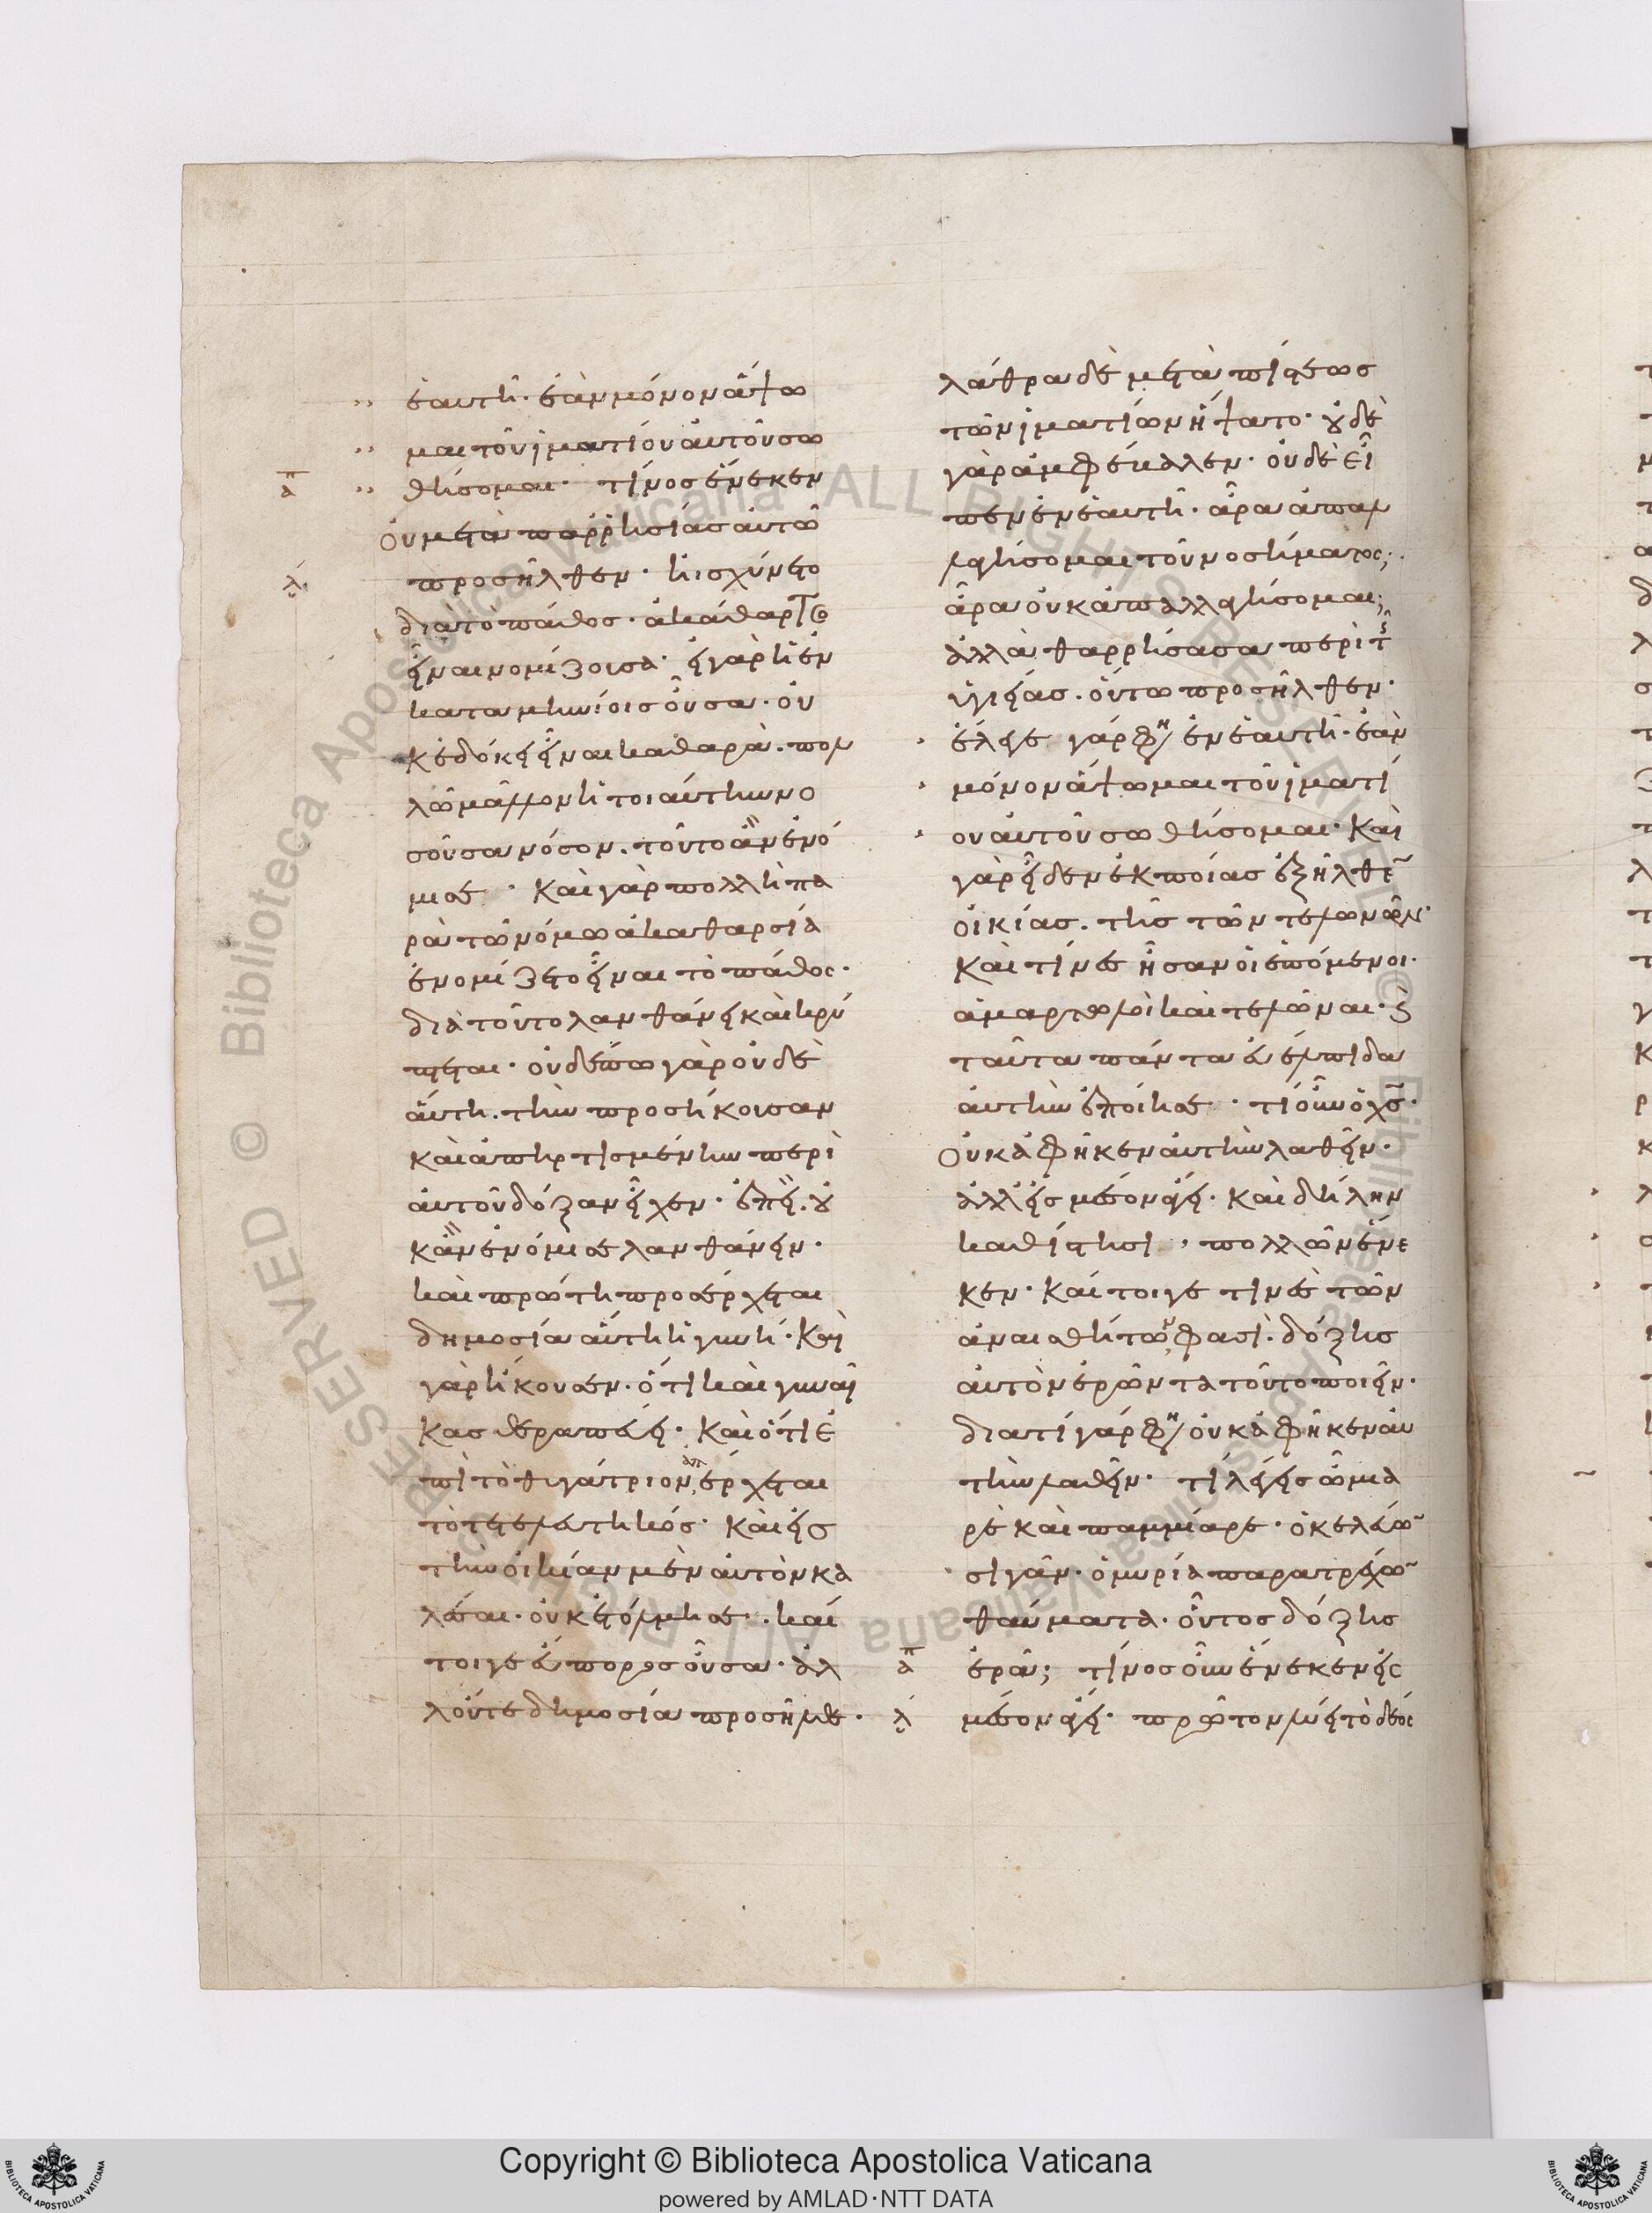 ἑαυτῆ· ἐὰν μόνον ἅψω
μαι τοῦ ἱματίου αὐτοῦ σω
θήσομαι· τίνος ἕνεκεν
οὐ μετὰ παρρησίας αὐτῶ
προσῆλθεν· ἠσχύνετο
διὰ τὸ πάθος· ἀκάθαρτο
εἶναι νομίζουσα· εἰ γὰρ ἡ ἐν
καταμηνίοις οὖσα· οὐ
κ ἐδόκει εἶναι καθαρά· πολ
λῶ μᾶλλον ἡ τοιαύτην νο
σοῦσα νόσον· τοῦτο ἂν ἐνό
μισε· καὶ γὰρ πολλὴ πα
ρὰ τῶ νόμω ἀκαθαρσία
ἐνομίζετο εἶναι τὸ πάθος·
διὰ τοῦτο λανθάνει καὶ κρύ
πτεται· οὐδέπω γὰρ οὐδὲ
αὕτη· τὴν προσήκουσαν
καὶ ἀπηρτισμένην περὶ
αὐτοῦ δόξαν εἶχεν· ἐπεὶ οὐ
κ ἂν ἐνόμισε λανθάνειν·
καὶ πρώτη προσέρχεται
δημοσία αὕτη ἡ γυνή· καὶ
γὰρ ἤκουσεν· ὅτι καὶ γυναῖ
κας θεραπεύει· καὶ ὅτι ἐ
πὶ τὸ θυγάτριον ἀπέρχεται
τὸ τετελευτηκός· καὶ εἰς
τὴν οἰκίαν μὲν αὐτὸν κα
λέσαι· οὐκ ἐτόλμησε· καί
τοιγε εὔπορος οὖσα· ἀλ
λ' οὔτε δημοσία προσῆλθε·
λάθρα δὲ μετὰ πίστεως
τῶν ἱματίων ἥψατο· οὐδὲ
γὰρ ἀμφέβαλεν· οὐδὲ εἶ
πεν ἐν ἑαυτῆ· ἆρα ἀπαλ
λαγήσομαι τοῦ νοσήματος;
ἆρα οὐκ ἀπαλλαγήσομαι;
ἀλλὰ θαρρήσασα περὶ τῆς
ὑγιείας· οὕτω προσῆλθεν·
ἔλεγε γάρ φη ἐν ἑαυτῆ· ἐὰν
μόνον ἅψωμαι τοῦ ἱματί
ου αὐτοῦ σωθήσομαι· καὶ
γὰρ εἶδεν ἐκ ποίας ἐξῆλθε
οἰκίας· τῆς τῶν τελωνῶν·
καὶ τίνες ἦσαν οἱ ἑπόμενοι·
ἁμαρτωλοὶ καὶ τελῶναι· καὶ
ταῦτα πάντα εὔελπιδα
αὐτὴν ἐποίησε· τί οὖν ὁ χς·
οὐκ ἀφῆκεν αὐτὴν λαθεῖν·
ἀλλ' εἰς μέσον ἄγει· καὶ δήλην
καθίστησι, πολλῶν ἕνε
κεν· καίτοιγε τινὲς τῶν
ἀναισθήτων φασί· δόξης
αὐτὸν ἐρῶντα τοῦτο ποιεῖν·
διατί γάρ φη οὐκ ἀφῆκεν αὐ
τὴν λαθεῖν· τί λέγεις ὦ μια
ρὲ καὶ παμμίαρε· ὁ κελεύω
σιγᾶν· ὁ μυρία παρατρέχω
θαύματα· οὗτος δόξης
ἐρᾶ; τίνος οὖν ἕνεκεν εἰς
μέσον ἄγει· πρῶτον λύει τὸ δέος